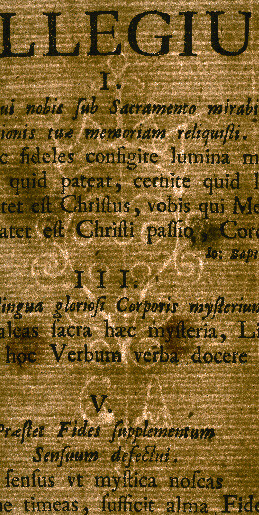 LLEGIU
I.
ui nobis ſub Sacramento mirabi
ionis tuæ memoriam reliquiſti.
c fideles configite lumina m
quid pateat, cernite quid l
tet eſt Chriſtus, vobis qui Me
atet eſt Chriſti paſſio, Cor
III.
lingua glorioſi Corporis myſterium
alcas ſacra hæc myſteria, Li
hoc Verbum verba docere
V.
Præſtet Fides ſupplementum
Senſuum defectui.
ſenſus vt myſtica noſcas
ne, timeas, ſufficit alma Fide